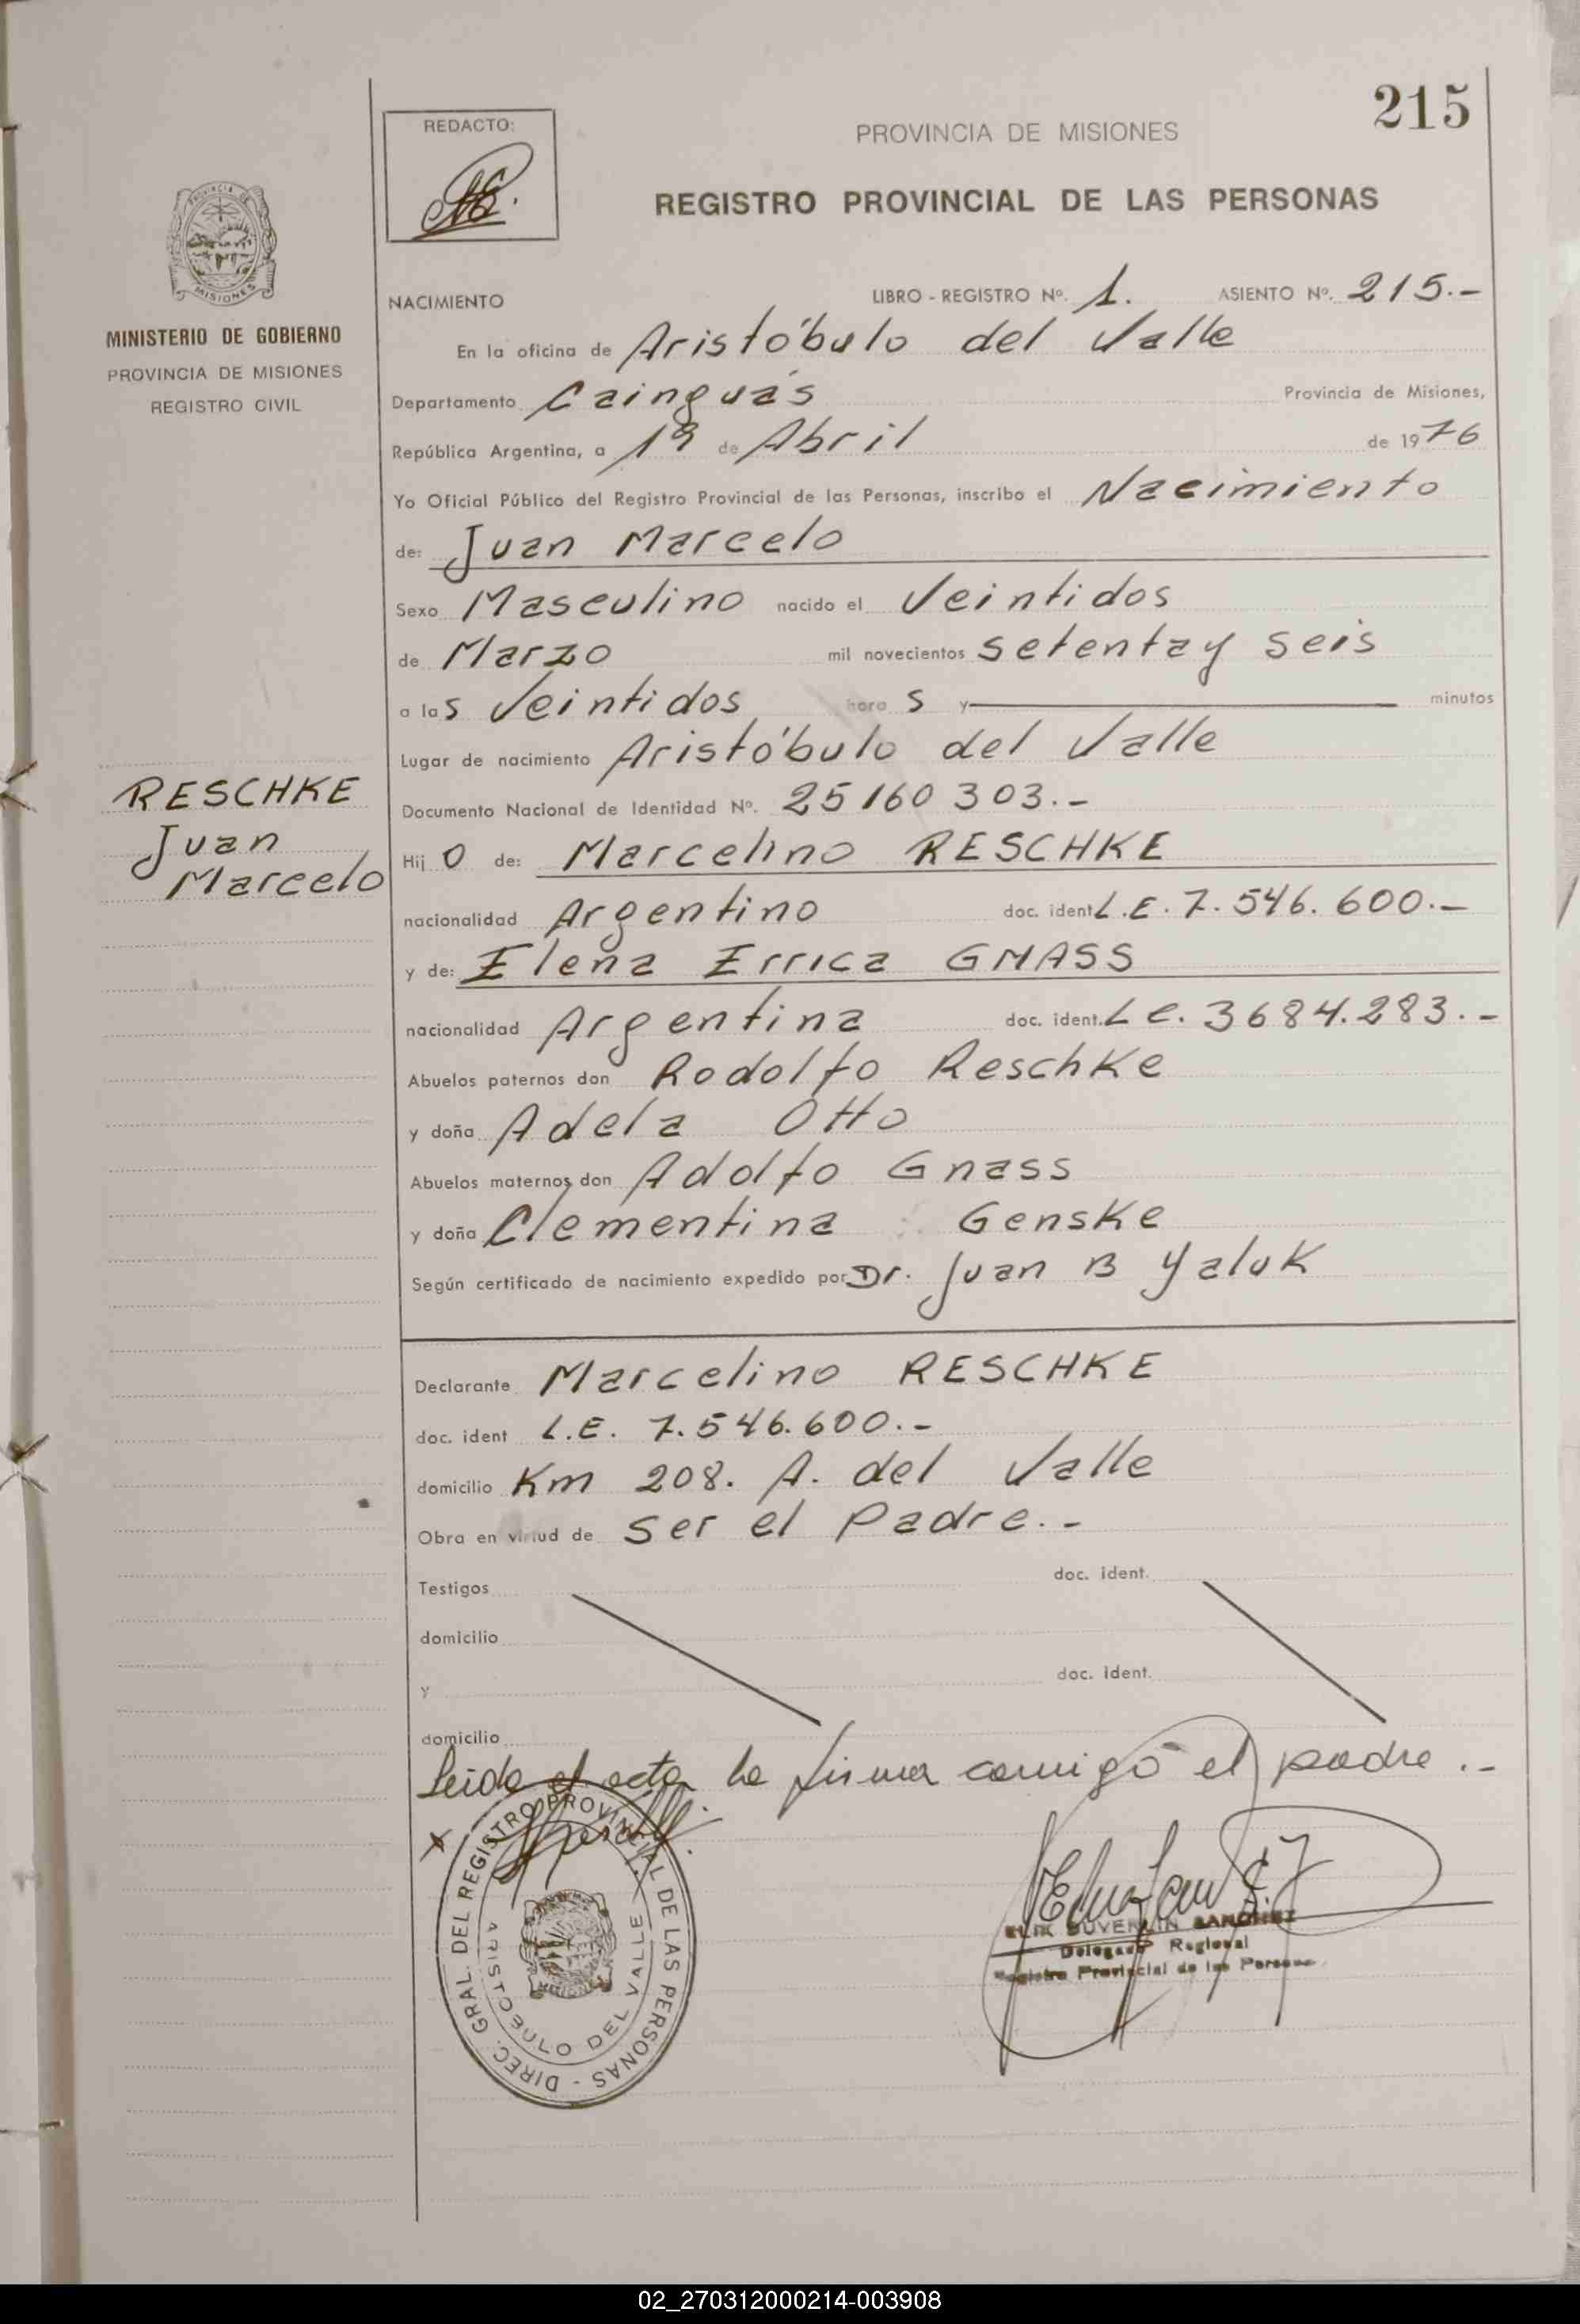 215
REDACTO:
PROVINCIA DE MISIONES
REGISTRO PROVINCIAL DE LAS PERSONAS
PROVINCIA DE
MISIONES
MINISTERIO DE GOBIERNO
PROVINCIA DE MISIONES
REGISTRO CIVIL
NACIMIENTO LIBRO - REGISTRO Nº. 1. ASIENTO Nº. 215.-
En la oficina de Aristóbulo del Valle
Departamento Cainguás Provincia de Misiones,
República Argentina, a 19 de Abril de 1976
Yo Oficial Público del Registro Provincial de las Personas, inscribo el Nacimiento
de: Juan Marcelo
Sexo Masculino nacido el Veintidos
de Marzo mil novecientos setenta y seis
a las Veintidos horas y minutos
Lugar de nacimiento Aristóbulo del Valle
Documento Nacional de Identidad Nº. 25160303.-
RESCHKE
Juan
Marcelo
Hijo de: Marcelino RESCHKE
nacionalidad Argentino doc. ident L.E. 7.546.600.-
y de: Elena Errica GNASS
nacionalidad Argentina doc. ident. L e. 3684.283.-
Abuelos paternos don Rodolfo Reschke
y doña Adela Otto
Abuelos maternos don Adolfo Gnass
y doña Clementina Genske
Según certificado de nacimiento expedido por Dr. Juan B Yaluk
Declarante Marcelino RESCHKE
doc. ident L.E. 7.546.600.-
domicilio Km 208. A. del Valle
Obra en virtud de ser el Padre.-
Testigos doc. ident.
domicilio
y doc. ident.
domicilio
Leida el acta la firma conmigo el padre .-
x
DIREC. GRAL. DEL REGISTRO PROVINCIAL DE LAS PERSONAS -
ARISTOBULO DEL VALLE
MISIONES
SANCHEZ
Delegado Regional
Registro Provincial de las Personas
02_270312000214-003908